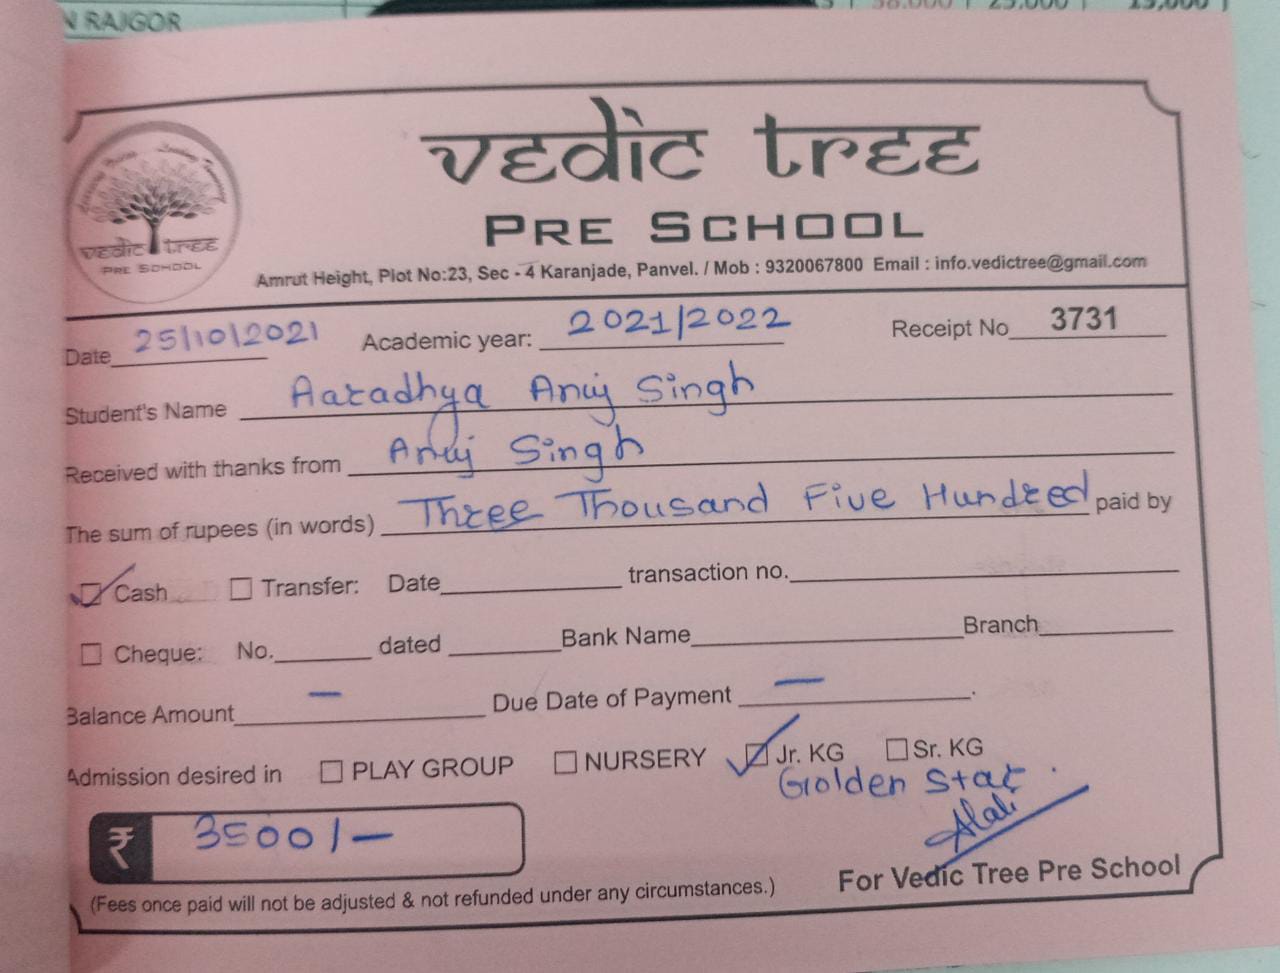 N RAJGOR
38.000 25,000 15,000
vedic tree
PRE SCHOOL
vedic tree
PRE SCHOOL
Amrut Height, Plot No:23, Sec - 4 Karanjade, Panvel. / Mob : 9320067800 Email : info.vedictree@gmail.com
Date 25/10/2021 Academic year: 2021/2022 Receipt No 3731
Student's Name Aaradhya Anuj Singh
Received with thanks from Anuj Singh
The sum of rupees (in words) Three Thousand Five Hundred paid by
Cash Transfer: Date transaction no.
Cheque: No. dated Bank Name Branch
Balance Amount — Due Date of Payment — .
Admission desired in PLAY GROUP NURSERY Jr. KG Sr. KG
Golden Star .
₹ 3500/-
For Vedic Tree Pre School
(Fees once paid will not be adjusted & not refunded under any circumstances.)